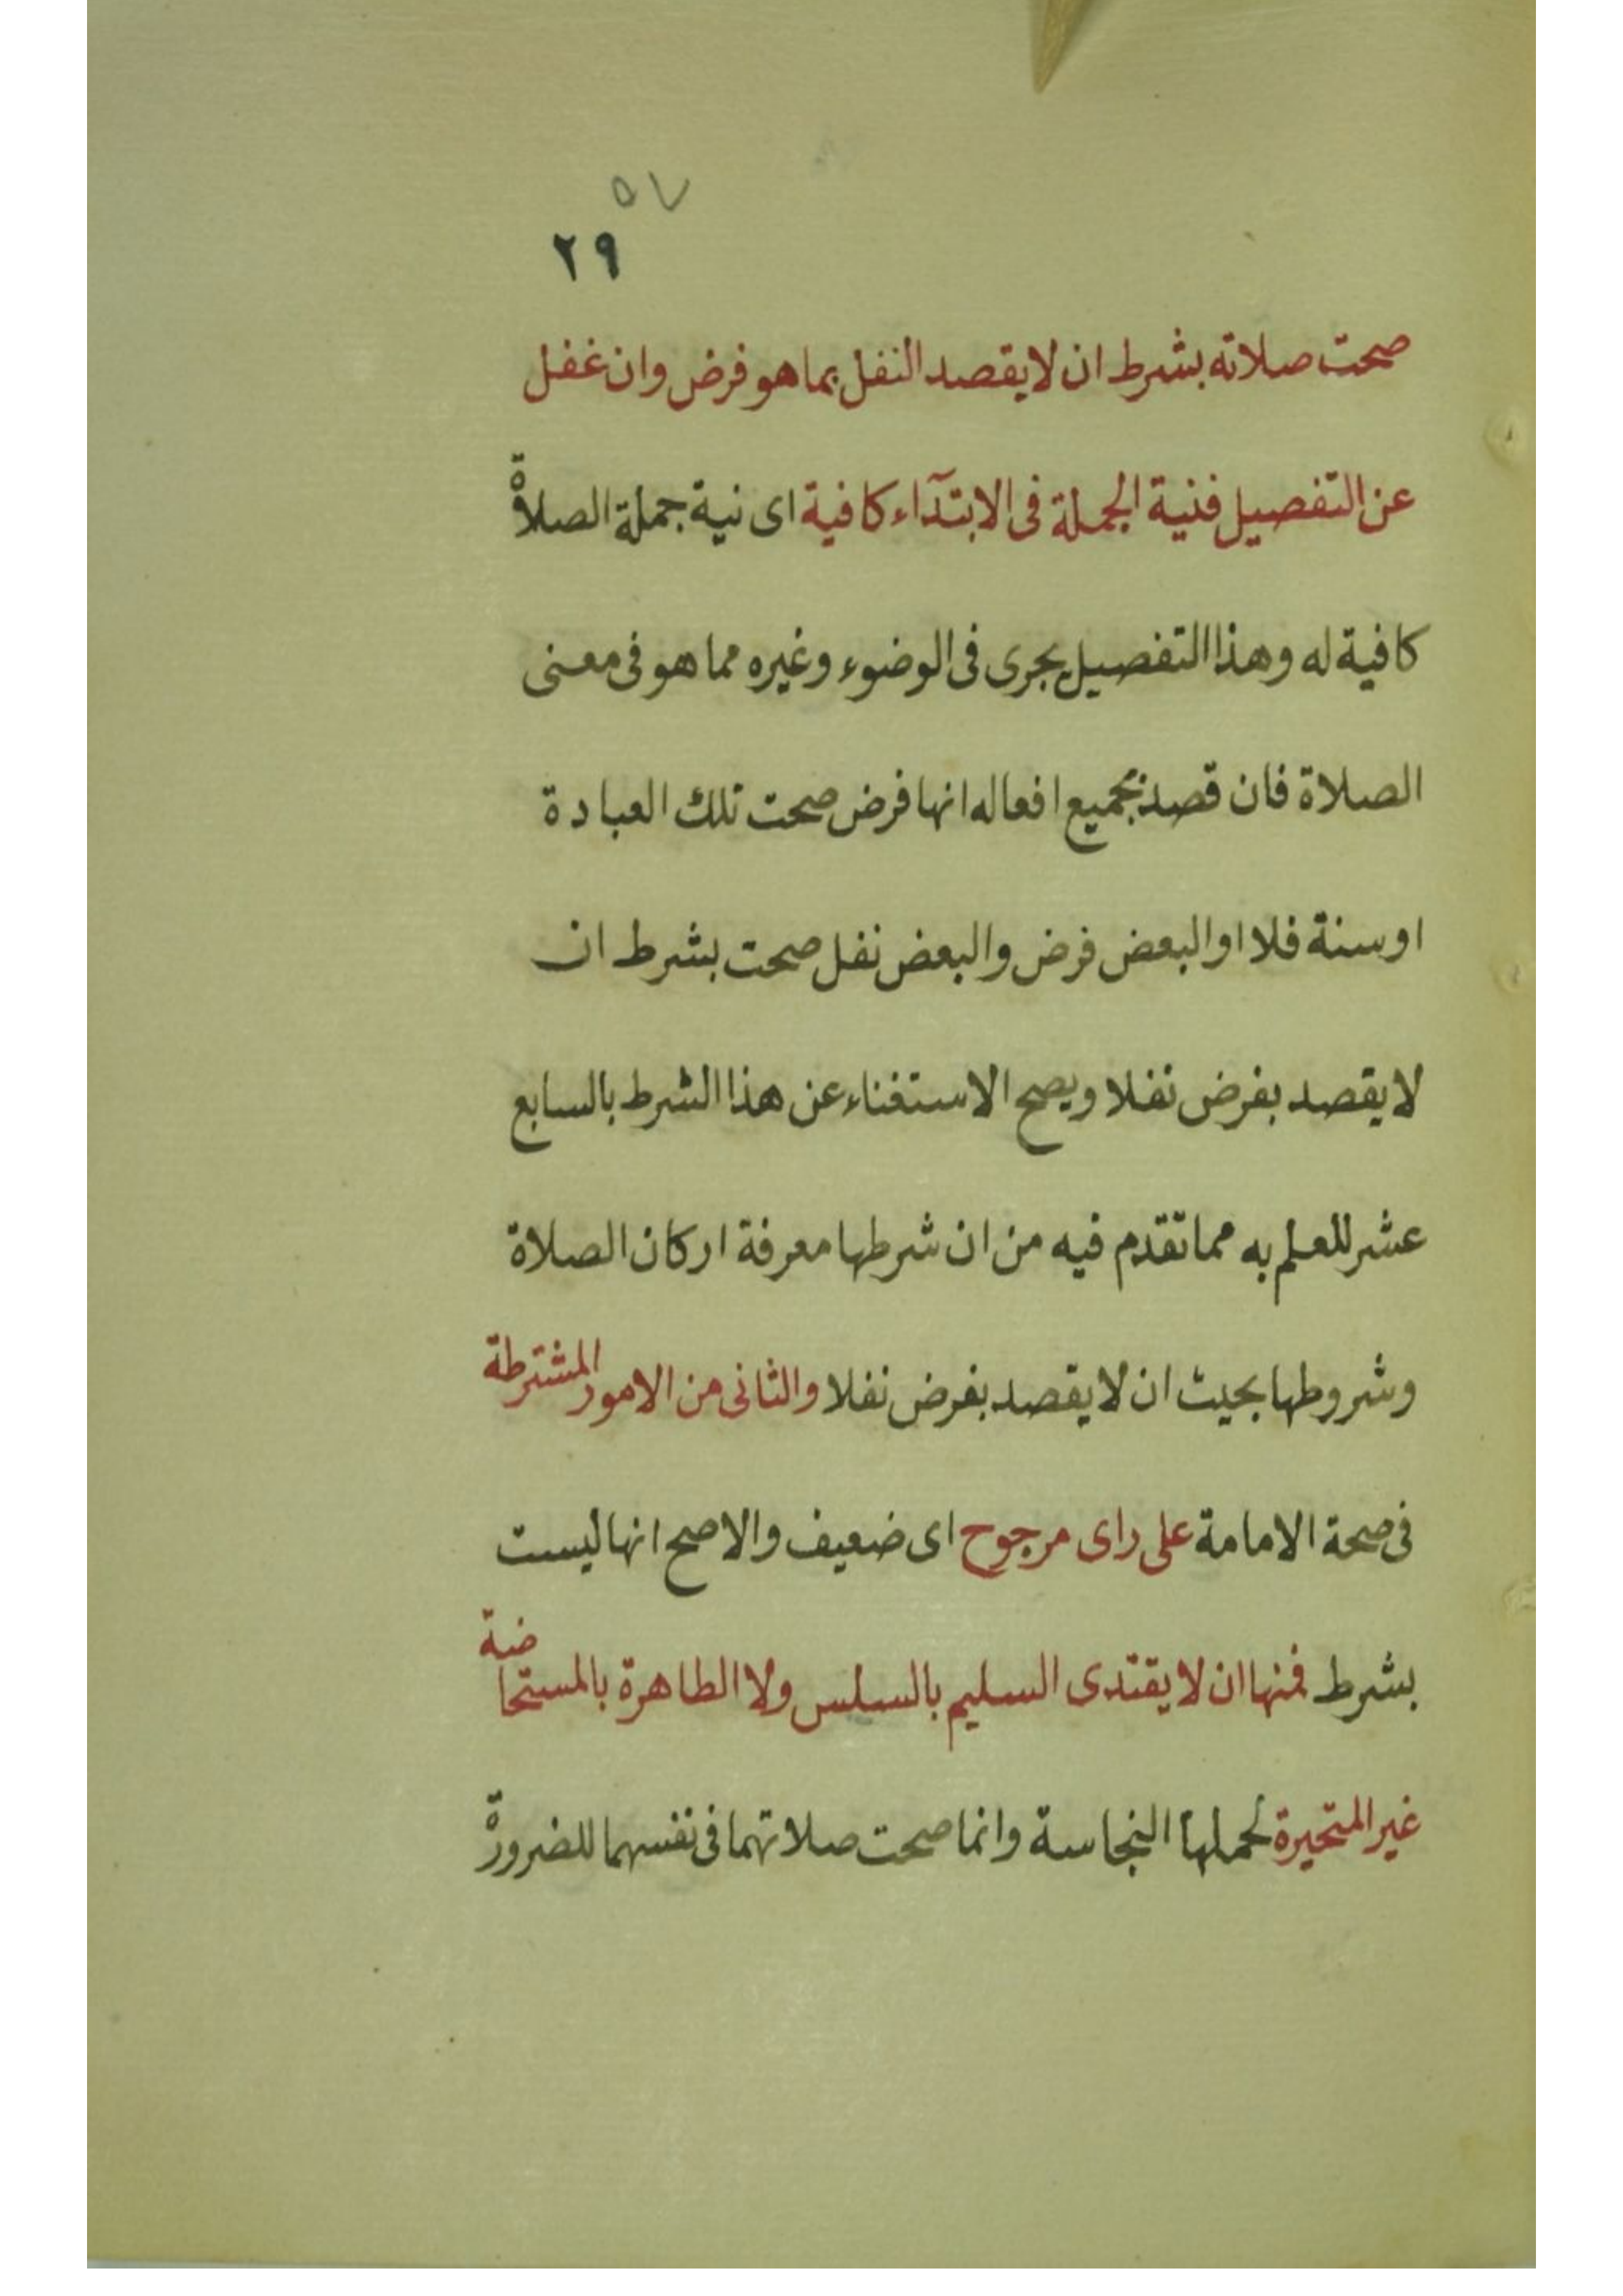 ٥٧
٢٩
صحت صلاته بشرط ان لا يقصد النفل بما هو فرض وان غفل
عن التفصيل فنية الجملة فى الابتدآء كافية اى نية جملة الصلاة
كافية له وهذا التفصيل يجرى فى الوضوء وغيره مما هو فى معنى
الصلاة فان قصد بجميع افعاله انها فرض صحت تلك العبادة
او سنة فلا او البعض فرض والبعض نفل صحت بشرط ان
لا يقصد بفرض نفلا ويصح الاستغناء عن هذا الشرط بالسابع
عشر للعلم به مما تقدم فيه من ان شرطها معرفة اركان الصلاة
وشروطها بحيث ان لا يقصد بفرض نفلا والثانى من الامور المشترطة
فى صحة الامامة على راى مرجوح اى ضعيف والاصح انها ليست
بشرط فمنها ان لا يقتدى السليم بالسلس ولا الطاهرة بالمستحاضة
غير المتحيرة لحملها النجاسة وانما صحت صلاتهما فى نفسهما للضرورة